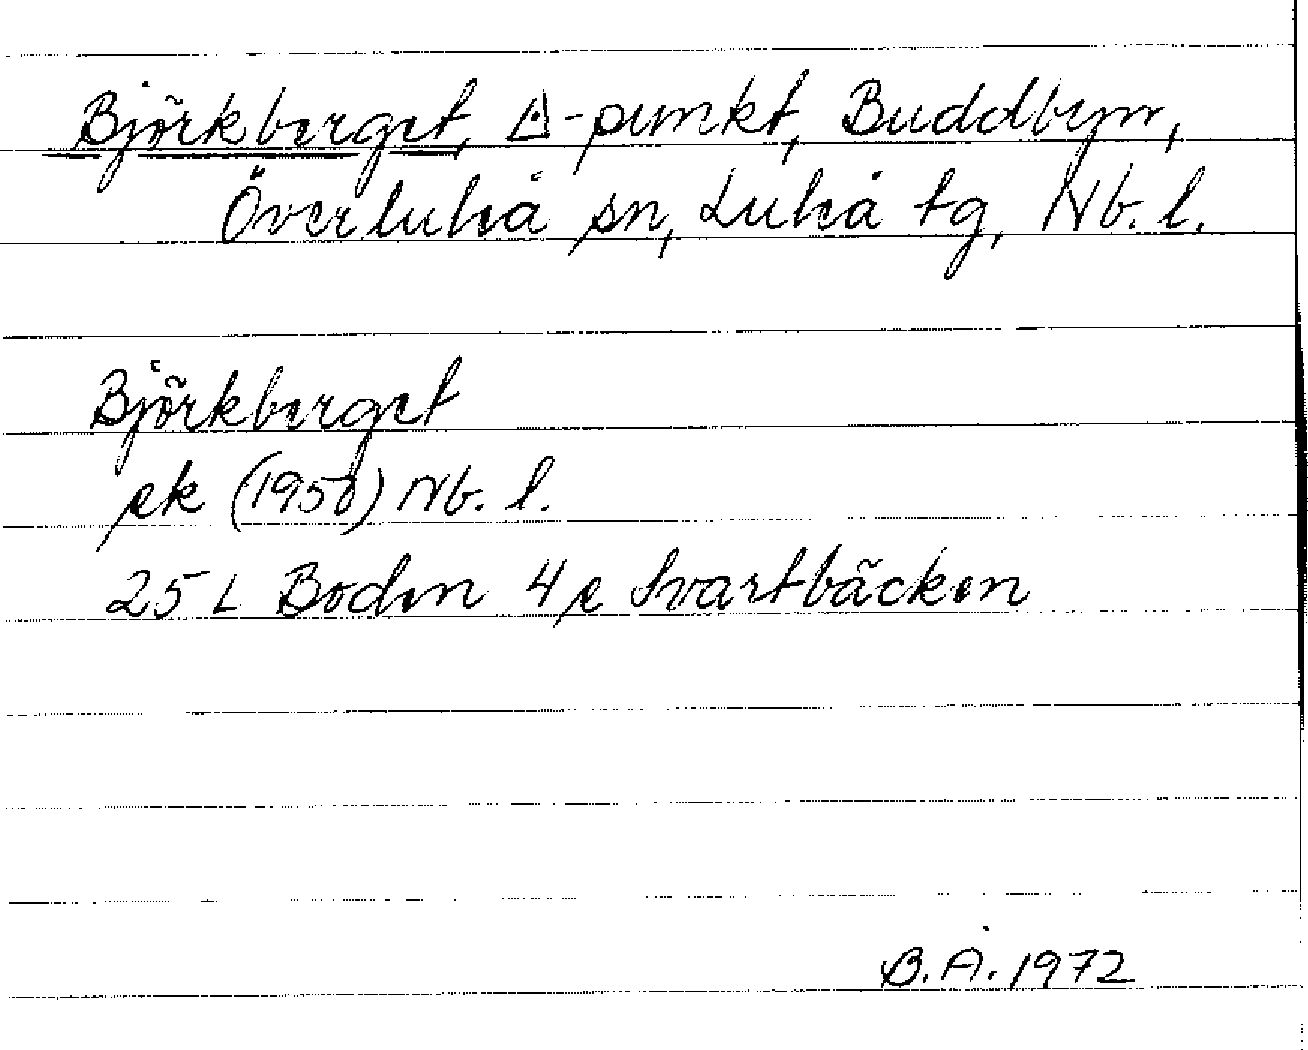 Björkberget, △-punkt, Buddbyn,
Överluleå sn, Luleå tg, Nb. l.
Björkberget
ek (1950) Nb. l.
25 L Boden 4 e Svartbäcken
B.Å. 1972